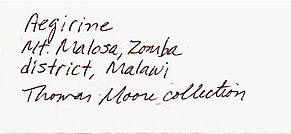 Aegirine
Mt. Malosa, Zomba
district, Malawi
Thomas Moore collection